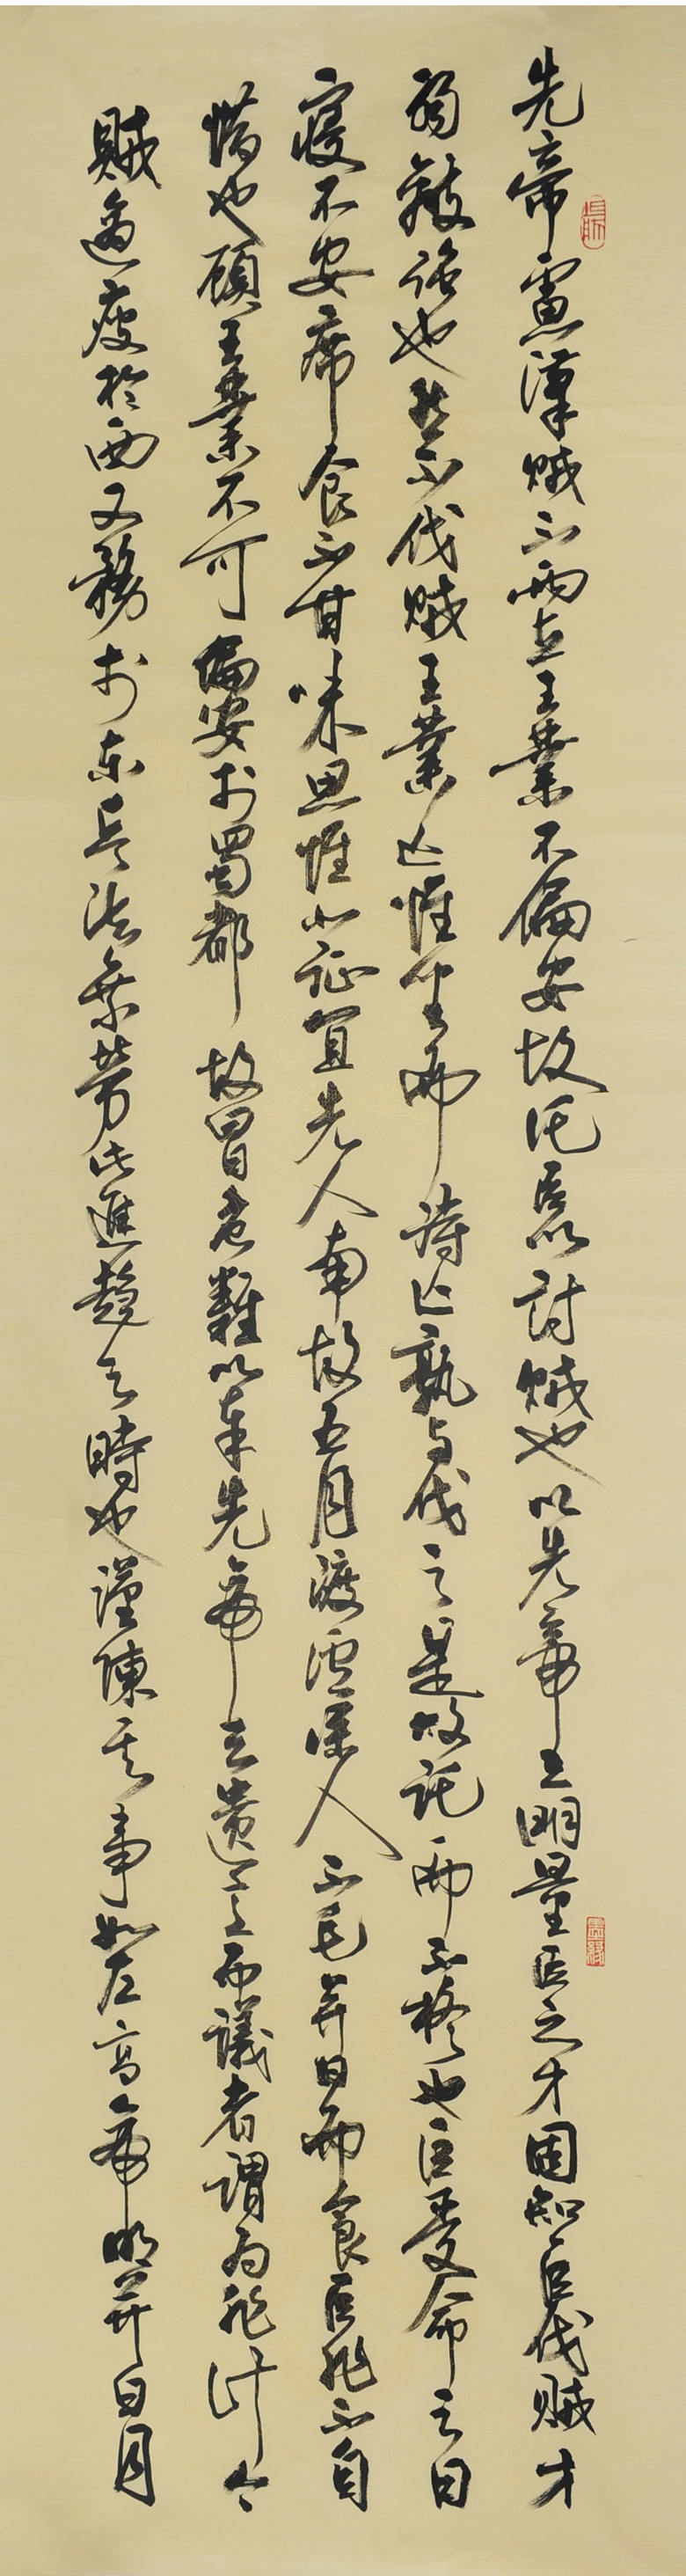 先帝慮漢賊不兩立王業不偏安故托臣以討賊也以先帝之明量臣之才固知臣伐賊才
弱敵強也然不伐賊王業亡惟坐而待亡孰与伐之是故託而不疑也臣受命之日
寢不安席食不甘味思惟北征宜先入南故五月渡瀘深入不毛并日而食臣非不自
惜也顧王業不可偏安於蜀都故冒危難以奉先帝之遺意而議者謂為非計今
賊適疲於西又務於東兵法乘勞此進趨之時也謹陳其事如左高帝明并日月
墨緣